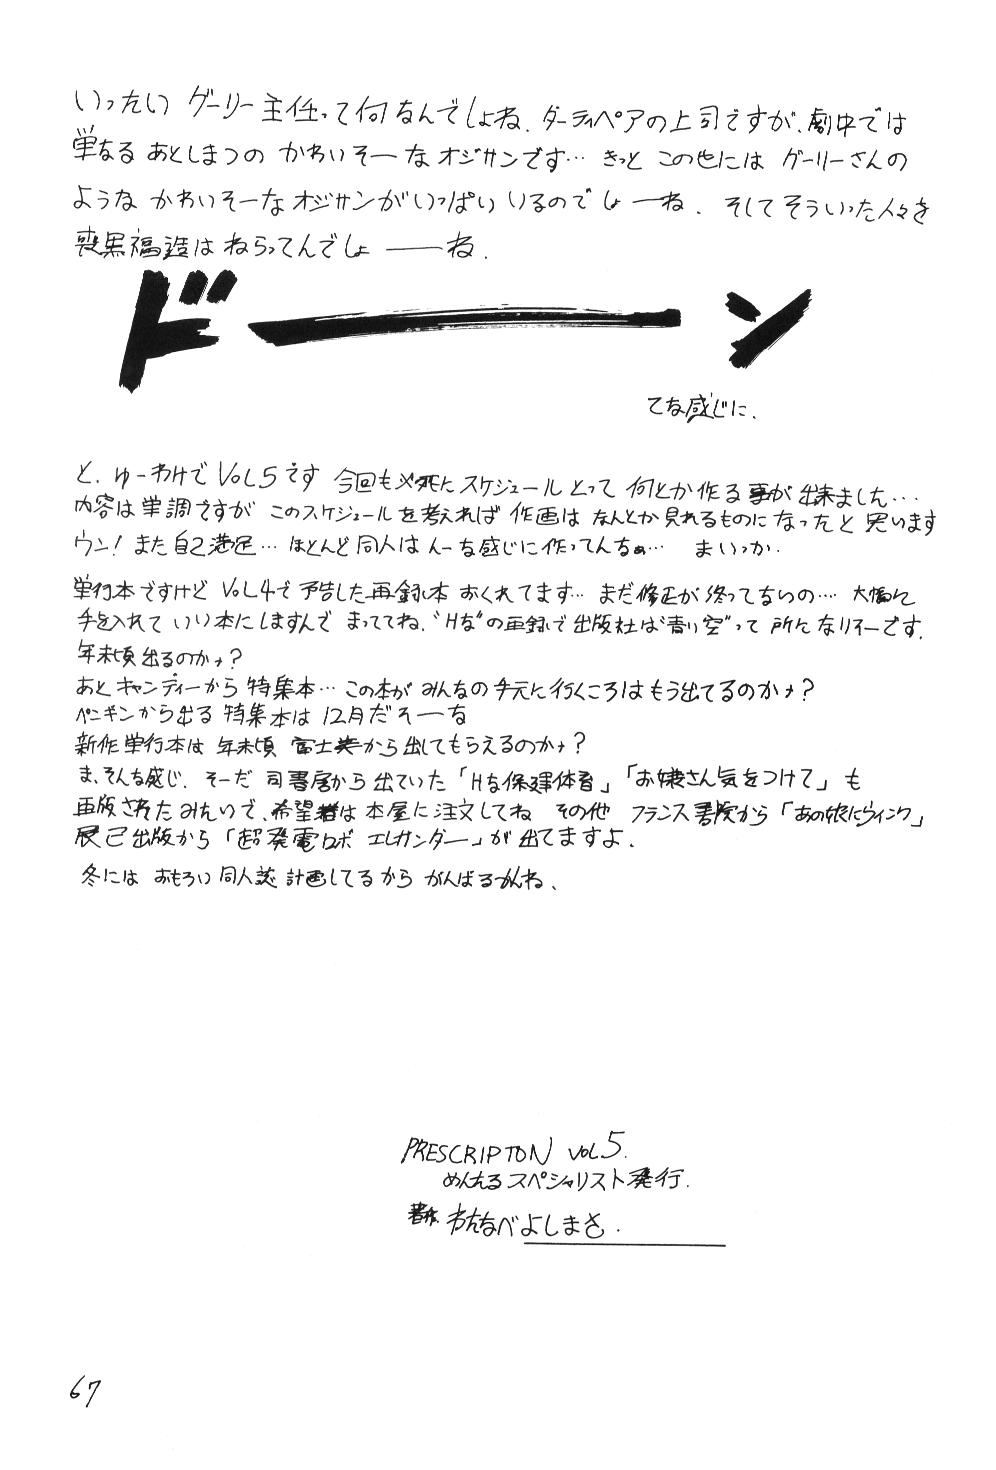 いったい グーリー主任って何なんでしょね、ダーティペアの上司ですが、劇中では
単なる あとしまつの かわいそーな オジサンです… きっと この他には グーリーさんの
ような かわいそーな オジサンが いっぱい いるのでしょーね. そして そういった人々を
喪黒福造は ねらってんでしょ ――ね.
ドーン
てな感じに.
と、ゆーわけで VOL5です 今回も必死に スケジュール とって 何とか作る事が 出来ました…
内容は単調ですが このスケジュールを考えれば 作画は なんとか見れるものになったと 思います
ウン! また自己満足… ほとんど同人は んーな感じに作ってんなぁ… まいっか.
単行本ですけど VOL4で予告した再録本 おくれてます… まだ修正が終ってないの… 大幅に
手を入れて いい本にしますんで まっててね. "Hな"の再録で出版社は"青い空"って 所になりそーです.
年末頃出るのかナ?
あと キャンディーから 特集本… この本が みんなの手元に行くころはもう出てるのかナ?
ペンギンから出る 特集本は 12月だそーな
新作単行本は 年末頃 富士美から出してもらえるのかナ?
ま、そんな感じ. そーだ 司書房から出ていた「Hな保健体育」「お嬢さん気をつけて」も
再版されたみたいで、希望者は 本屋に注文してね その他 フランス書院から「あの娘にウィンク」
辰己出版から「超発電ロボ エレガンダー」が 出てますよ.
冬には おもろい同人誌 計画してるから がんばるかんね、
PRESCRIPTON VOL5.
めんたるスペシャリスト発行.
著作. わたなべよしまさ.
67